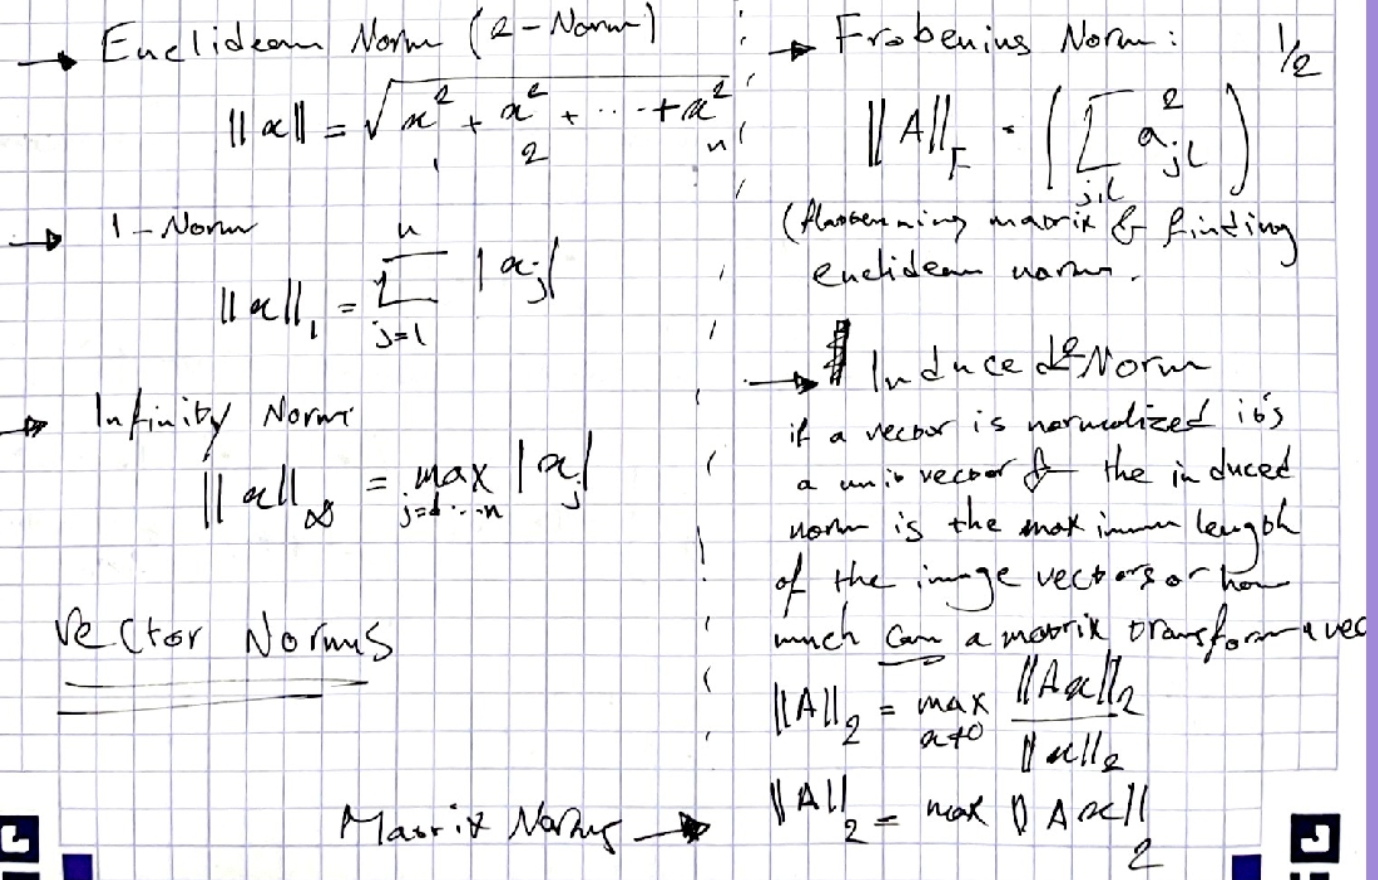 → Euclidean Norm (2-Norm)
||x|| = √(x₁² + x₂² + ... + xₙ²)
→ 1-Norm
||x||₁ = Σⁿⱼ₌₁ |xⱼ|
→ Infinity Norm
||x||∞ = max |xⱼ|
j=1...n
Vector Norms
Matrix Norms →
→ Frobenius Norm:
||A||F = (Σⱼ,ₗ a²ⱼₗ)^1/2
(flattenning matrix & finding
euclidean norm.
→ Induced 2-Norm
if a vector is normalized it's
a unit vector & the induced
norm is the maximum length
of the image vectors or how
much can a matrix transform a vec
||A||₂ = max ||Ax||₂ / ||x||₂
x≠0
||A||₂ = max ||Ax||₂